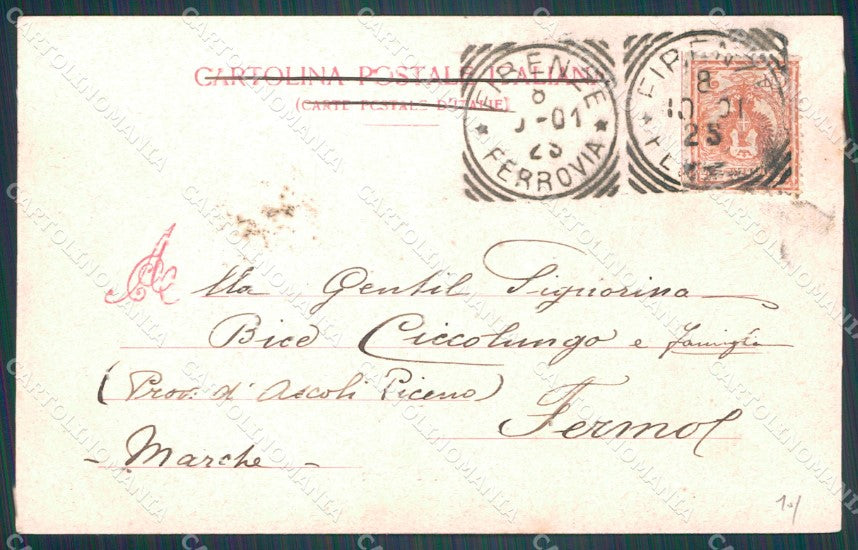 CARTOLINA POSTALE ITALIANA
(CARTE POSTALE D'ITALIE)
FIRENZE
8
10-01
23
FERROVIA
FIRENZE
8
10 01
23
FE
Alla Gentil Signorina
Bice Ciccolungo e famiglia
(Prov. d' Ascoli Piceno)
Fermo
- Marche -
CARTOLINOMANIA